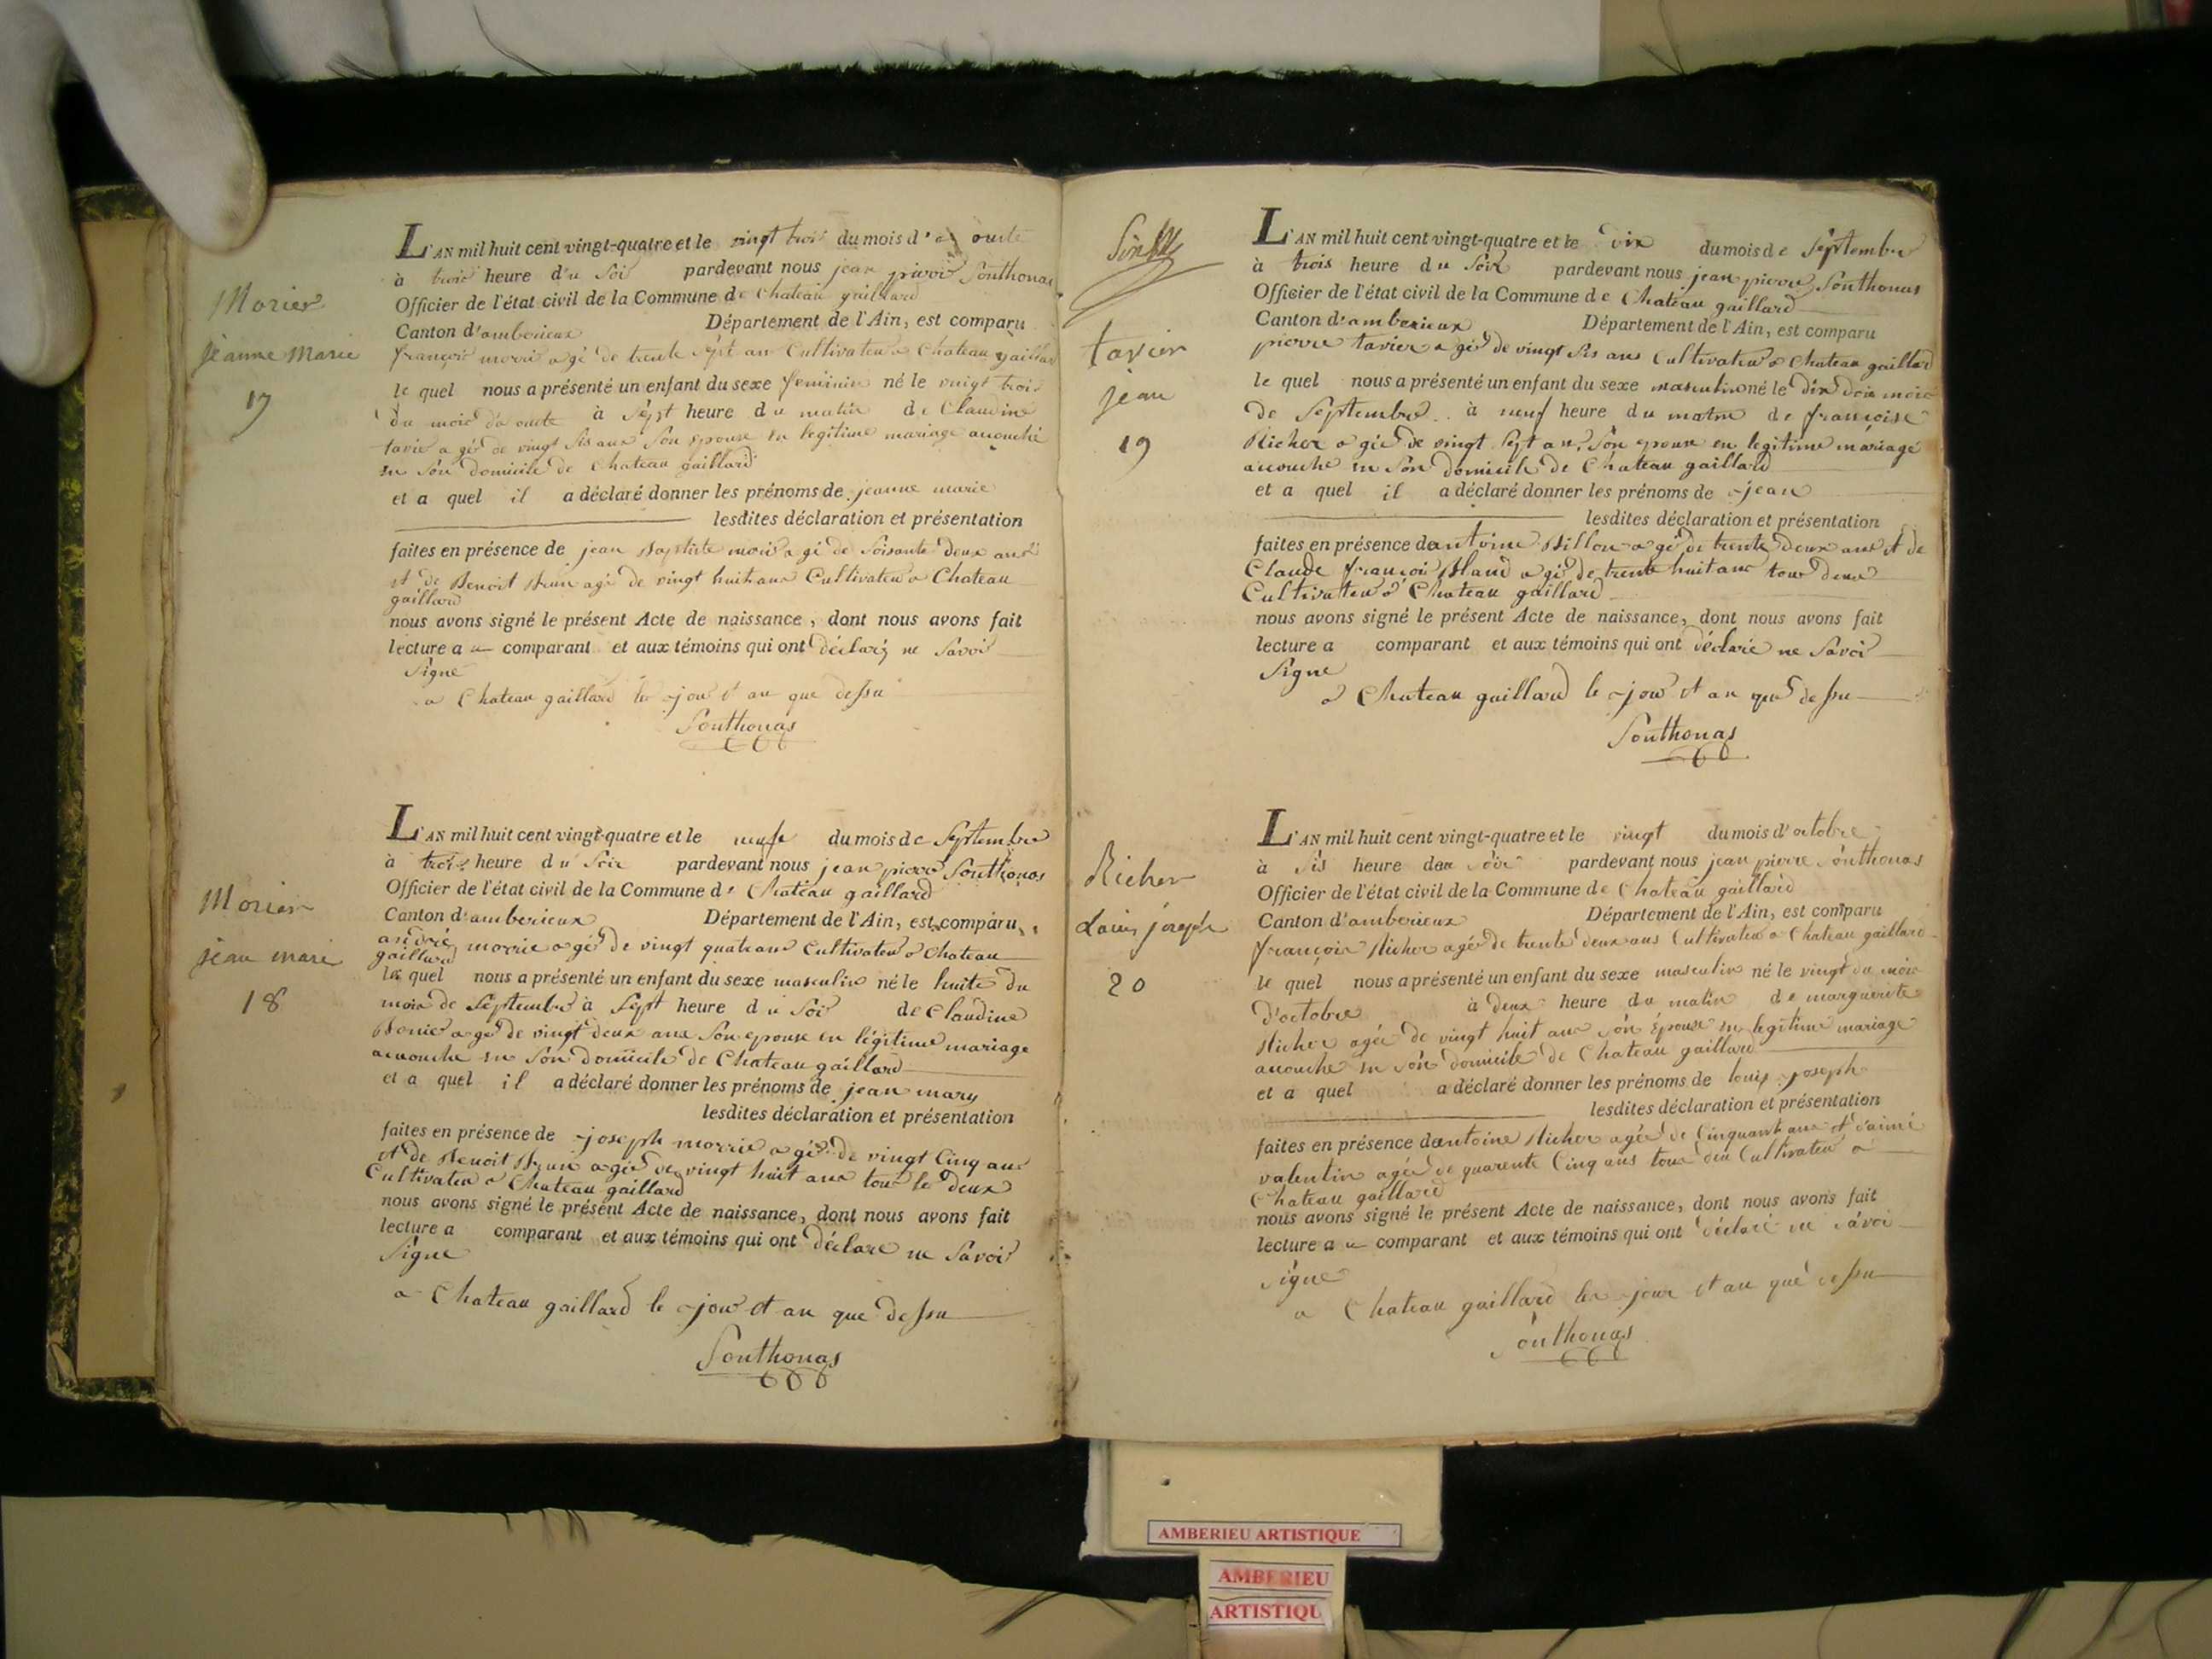 Morier
jeanne Marie
17
L'AN mil huit cent vingt-quatre et le vingt trois du mois d'aouste
à trois heure du Soir pardevant nous jean pierre Sonthonas
Officier de l'état civil de la Commune de Chateau gaillard
Canton d'amberieux Département de l'Ain, est comparu
françois morrie agé de trente sépt ans Cultivateur a Chateau gaillard
le quel nous a présenté un enfant du sexe feminin né le vingt trois
du mois d'aouste à sépt heure du matin de Claudine
tavie agé de vingt sis ans Son epouse en legitime mariage acouché
en Son domicile de Chateau gaillard
et a quel il a déclaré donner les prénoms de jeanne marie
lesdites déclaration et présentation
faites en présence de jean Baptiste morie agé de soisante deux ans
et de Benoit Brun agé de vingt huit ans Cultivateur a Chateau
gaillard
nous avons signé le présent Acte de naissance, dont nous avons fait
lecture a u comparant et aux témoins qui ont déclaré ne Savoir
Signe
a Chateau gaillard le jour et an que dessu
Sonthonas
Morier
jean marie
18
L'AN mil huit cent vingt-quatre et le neufe du mois de Septembre
à trois heure du Soir pardevant nous jean pierre Sonthonas
Officier de l'état civil de la Commune de Chateau gaillard
Canton d'amberieux Département de l'Ain, est comparu
andré morrie agé de vingt quatre ans Cultivateur a Chateau
gaillard
le quel nous a présenté un enfant du sexe masculin né le huite du
mois de Septembre à Sept heure du Soir de Claudine
agé de vingt deux ans Son epouse en légitime mariage
acouche en Son domicile de Chateau gaillard
et a quel il a déclaré donner les prénoms de jean mary
lesdites déclaration et présentation
faites en présence de joseph morrie agé de vingt Cinq ans
et de Benoit Brun agé de vingt huit ans tous le deux
Cultivateur a Chateau gaillard
nous avons signé le présent Acte de naissance, dont nous avons fait
lecture a comparant et aux témoins qui ont déclare ne Savoir
Signe
a Chateau gaillard le jour et an que dessu
Sonthonas
tavier
jean
19
L'AN mil huit cent vingt-quatre et le dix du mois de Septembre
à trois heure du Soir pardevant nous jean pierre Sonthonas
Officier de l'état civil de la Commune de Chateau gaillard
Canton d'amberieux Département de l'Ain, est comparu
pierre tavier agé de vingt sis ans Cultivateur a Chateau gaillard
le quel nous a présenté un enfant du sexe masculin né le dix dou mois
de Septembre à neuf heure du matin de françoise
Richer agée de vingt Sept ans, Son epouse en legitime mariage
acouche en Son domicile de Chateau gaillard
et a quel il a déclaré donner les prénoms de jean
lesdites déclaration et présentation
faites en présence dantoine Billon agé de trente deux ans et de
Claude françois Bland agé de trente huit ans tous deux
Cultivateur a Chateau gaillard
nous avons signé le présent Acte de naissance, dont nous avons fait
lecture a comparant et aux témoins qui ont déclaré ne Savoir
Signe
a Chateau gaillard le jour et an que dessu
Sonthonas
Richer
Louis joseph
20
L'AN mil huit cent vingt-quatre et le vingt du mois d'octobre
à sis heure du Soir pardevant nous jean pierre Sonthonas
Officier de l'état civil de la Commune de Chateau gaillard
Canton d'amberieux Département de l'Ain, est comparu
françois Richer agé de trente deux ans Cultivateur a Chateau gaillard
le quel nous a présenté un enfant du sexe masculin né le vingt du mois
d'octobre à deux heure du matin de marguerite
Richer agée de vingt huit ans Son épouse en legitime mariage
acouche en Son domicile de Chateau gaillard
et a quel a déclaré donner les prénoms de louis joseph
lesdites déclaration et présentation
faites en présence dantoine Richer agée de Cinquant ans et d'aimé
valentin agée de quarente Cinq ans tous deu Cultivateur a
Chateau gaillard
nous avons signé le présent Acte de naissance, dont nous avons fait
lecture a u comparant et aux témoins qui ont déclaré ne Savoir
Signe
a Chateau gaillard le jour et an que dessu
Sonthonas
AMBERIEU ARTISTIQUE
AMBERIEU
ARTISTIQU